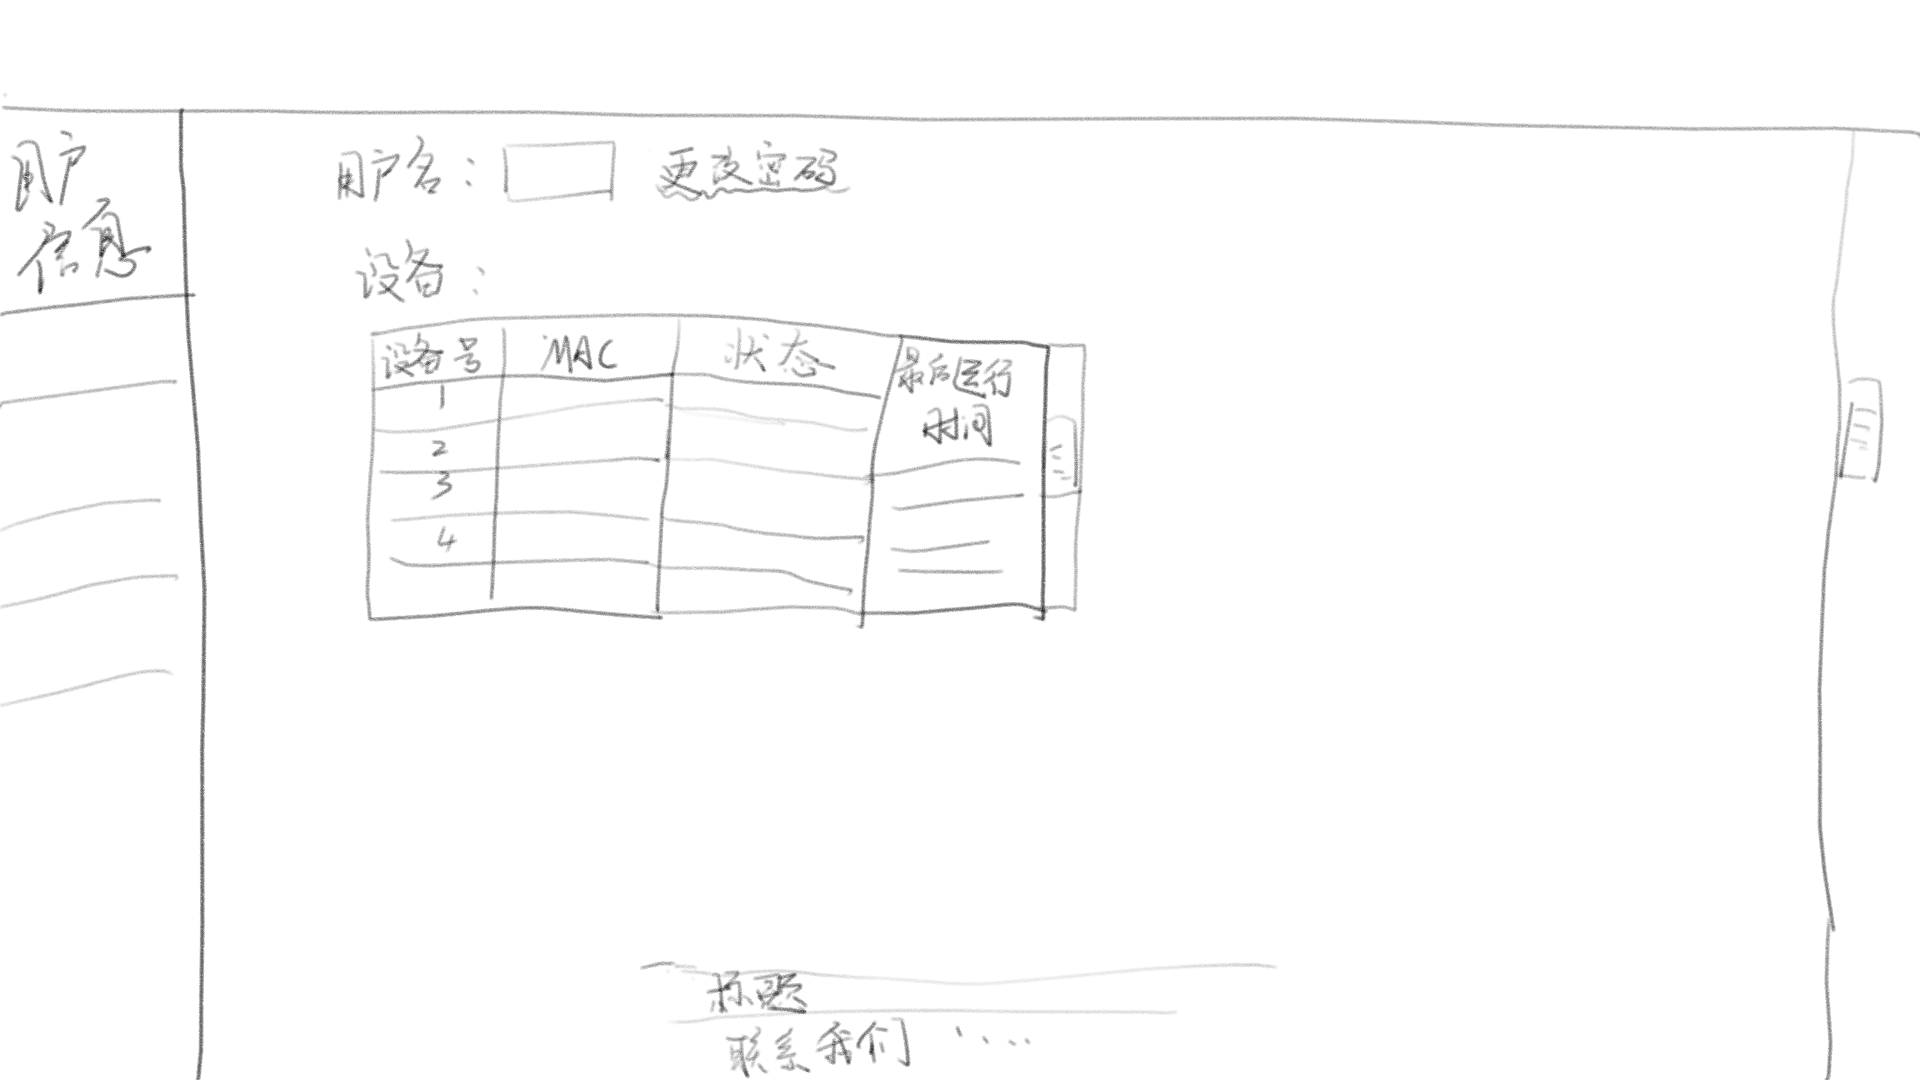 用户
信息
用户名： 更改密码
设备：
设备号 MAC 状态 最后运行
时间
1
2
3
4
标题
联系我们 ....